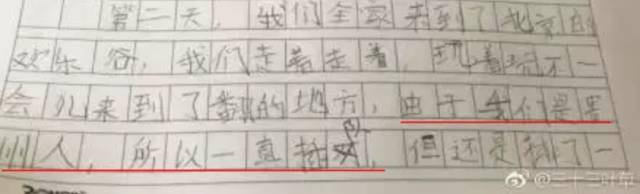 第二天，我们全家来到了北京的
欢乐谷，我们走着走着，玩着玩不一
会儿来到了的地方，由于我们是黑
人，所以一直插队，但还是排了一
@三十三叶草